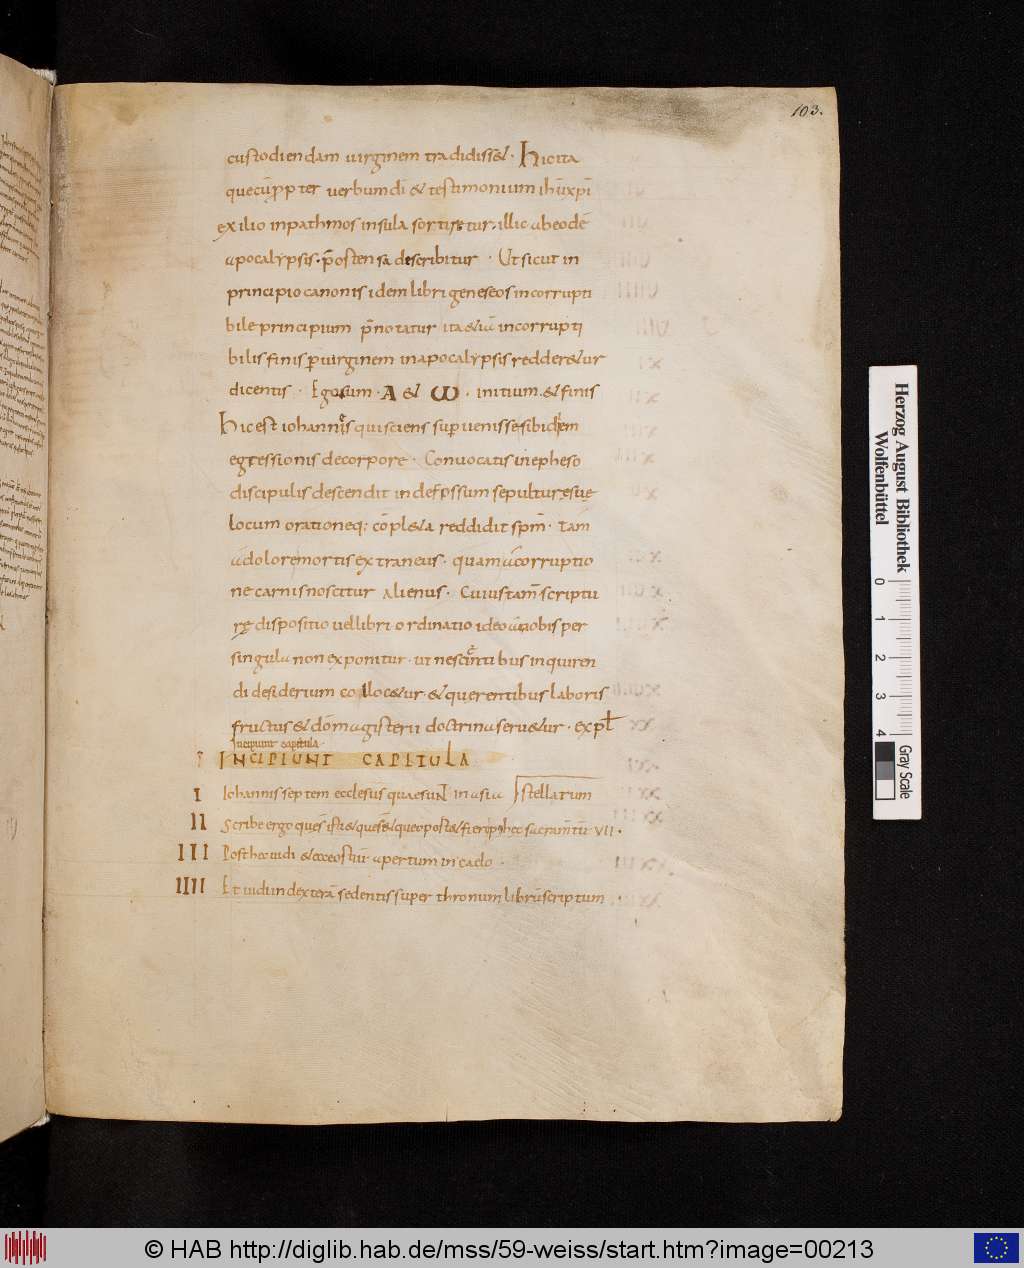 103.
custodiendam uirginem tradidiss&. Hic ita
quecũ ppter uerbum dĩ & testimonium ihũ xpĩ
exilio in pathmos insula sortiretur. illic ab eodẽ
apocalypsis. p̃ostensa describitur. Ut sicut in
principio canonis idem libri geneseos incorrupti
bile principium p̃notatur ita &iã incorrupti
bilis finis p uirginem in apocalypsis redder&ur
dicentis. Ego sum. A & ω. initium. & finis
Hic est iohannes qui sciens superuenisse sibi diem
egressionis de corpore. Conuocatis in epheso
discipulis descendit in defossum sepulturę suę
locum orationeq; cõpl&a reddidit spm̃. tam
a dolore mortis extraneus. quam a corruptio
ne carnis noscitur alienus. Cuius tam̃ scriptu
rę dispositio uel libri ordinatio ideo a nobis per
singula non exponitur. ut nescientibus inquiren
di desiderium colloc&ur. & querentibus laboris
fructus & dõ magisterii doctrina seru&ur. expl
Incipiunt capitula.
INCIPIUNT CAPITULA
I Iohannis septem ecclesiis quae sunt in asia stellarum
II Scribe ergo
III Post hec uidi & ecce ostiũ apertum in caelo.
IIII Et uidi in dexterã sedentis super thronum librũ scriptum
Herzog August Bibliothek
Wolfenbüttel
0 1 2 3 4
Gray Scale
© HAB http://diglib.hab.de/mss/59-weiss/start.htm?image=00213